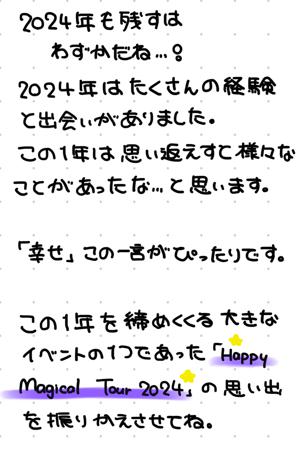 2024年も残すは
わずかだね…!
2024年はたくさんの経験
と出会いがありました。
この1年は思い返えすと様々な
ことがあったな…と思います。
「幸せ」この一言がぴったりです。
この1年を締めくくる大きな
イベントの1つであった「Happy
Magical Tour 2024」の思い出
を振りかえさせてね。